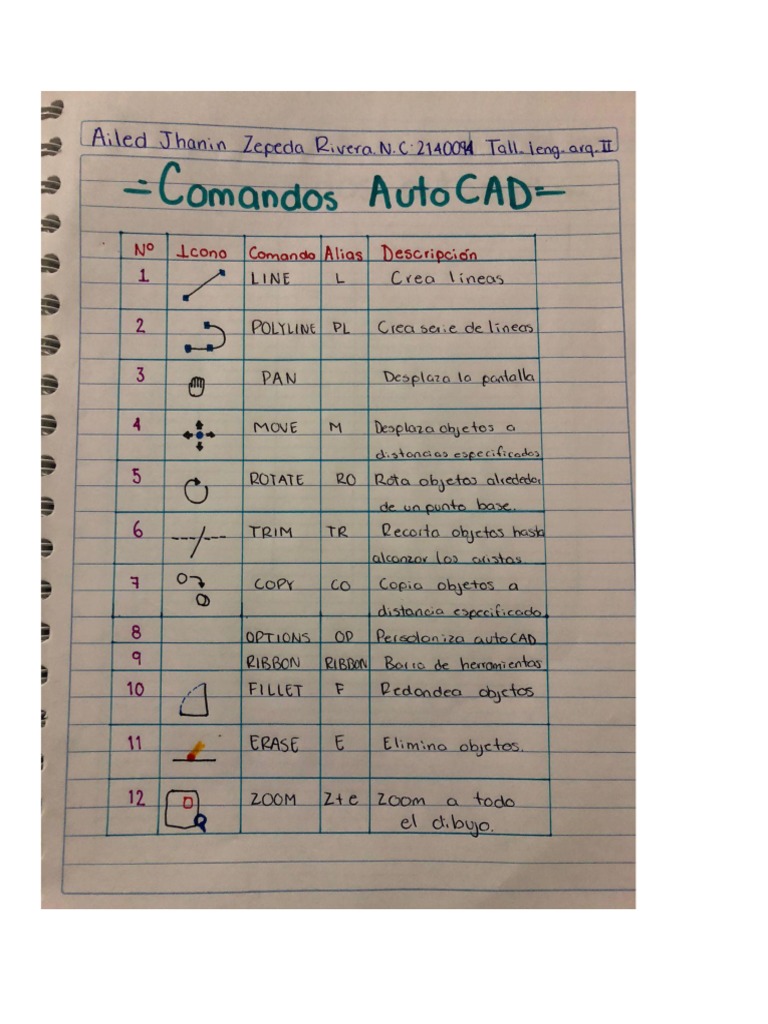 Ailed Jhanin Zepeda Rivera. N.C: 2140094 Tall. leng. arq. II
=Comandos AutoCAD=
Nº Icono Comando Alias Descripción
1 LINE L Crea lineas
2 POLYLINE PL Crea serie de lineas
3 PAN Desplaza la pantalla
4 MOVE M Desplaza objetos a
distancias especificados
5 ROTATE RO Rota objetos alrededor
de un punto base.
6 TRIM TR Recorta objetos hasta
alcanzar los aristas
7 COPY CO Copia objetos a
distancia especificado
8 OPTIONS OP Persoloniza autoCAD
9 RIBBON RIBBON Barra de herramientas
10 FILLET F Redondea objetos
11 ERASE E Elimino objetos.
12 ZOOM Z+e Zoom a todo
el dibujo.